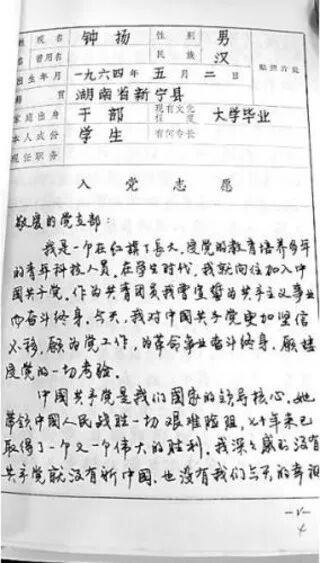 姓 现名 钟扬 性别 男
名 曾用名 民族 汉
出生年月 一九六四年五月二日 贴照片处
籍贯 湖南省新宁县
家庭出身 干部 现有文化程度 大学毕业
本人成份 学生 有何专长
现任职务
入党志愿
敬爱的党支部：
我是一个在红旗下长大，受党的教育培养多年
的青年科技人员。在学生时代，我就向往加入中
国共产党。作为共青团员我曾宣誓为共产主义事业
而奋斗终身。今天，我对中国共产党更加坚信
不移，愿为党工作，为革命事业奋斗终身，愿接
受党的一切考验。
中国共产党是我们国家的领导核心，她
带领中国人民战胜一切艰难险阻，七十年来已
取得了一个又一个伟大的胜利。我深深感到没有
共产党就没有新中国，也没有我们今天的幸福